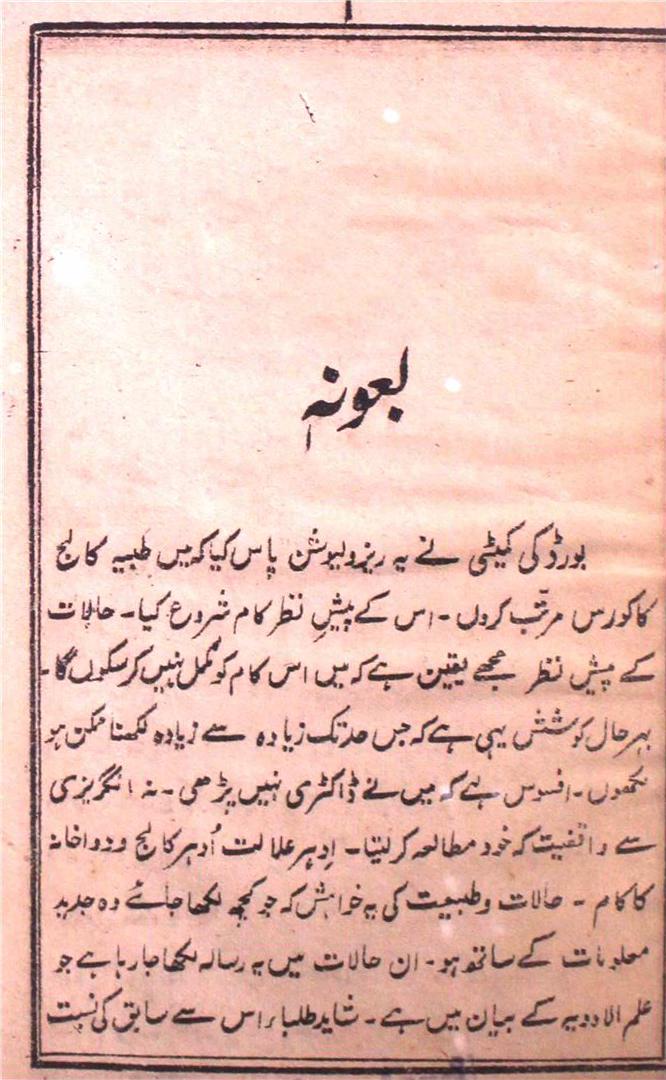 ۱
بعونہ
بورڈ کی کمیٹی نے یہ ریزولیوشن پاس کیا کہ میں طبیہ کالج
کا کورس مرتّب کروں۔ اس کے پیشِ نظر کام شروع کیا۔ حالات
کے پیشِ نظر مجھے یقین ہے کہ میں اس کام کو مکمل نہیں کر سکوں گا۔
بہر حال کوشش یہی ہے کہ جس حد تک زیادہ سے زیادہ لکھنا ممکن ہو
لکھوں۔ افسوس ہے کہ میں نے ڈاکٹری نہیں پڑھی۔ نہ انگریزی
سے واقفیت کہ خود مطالعہ کر لیتا۔ اِدہر علالت اُدہر کالج و دواخانہ
کا کام۔ حالات و طبیعت کی یہ خواہش کہ جو کچھ لکھا جائے وہ جدید
معلومات کے ساتھ ہو۔ ان حالات میں یہ رسالہ لکھا جا رہا ہے جو
علم الادویہ کے بیان میں ہے۔ شاید طلباء اس سے سابق کی نسبت